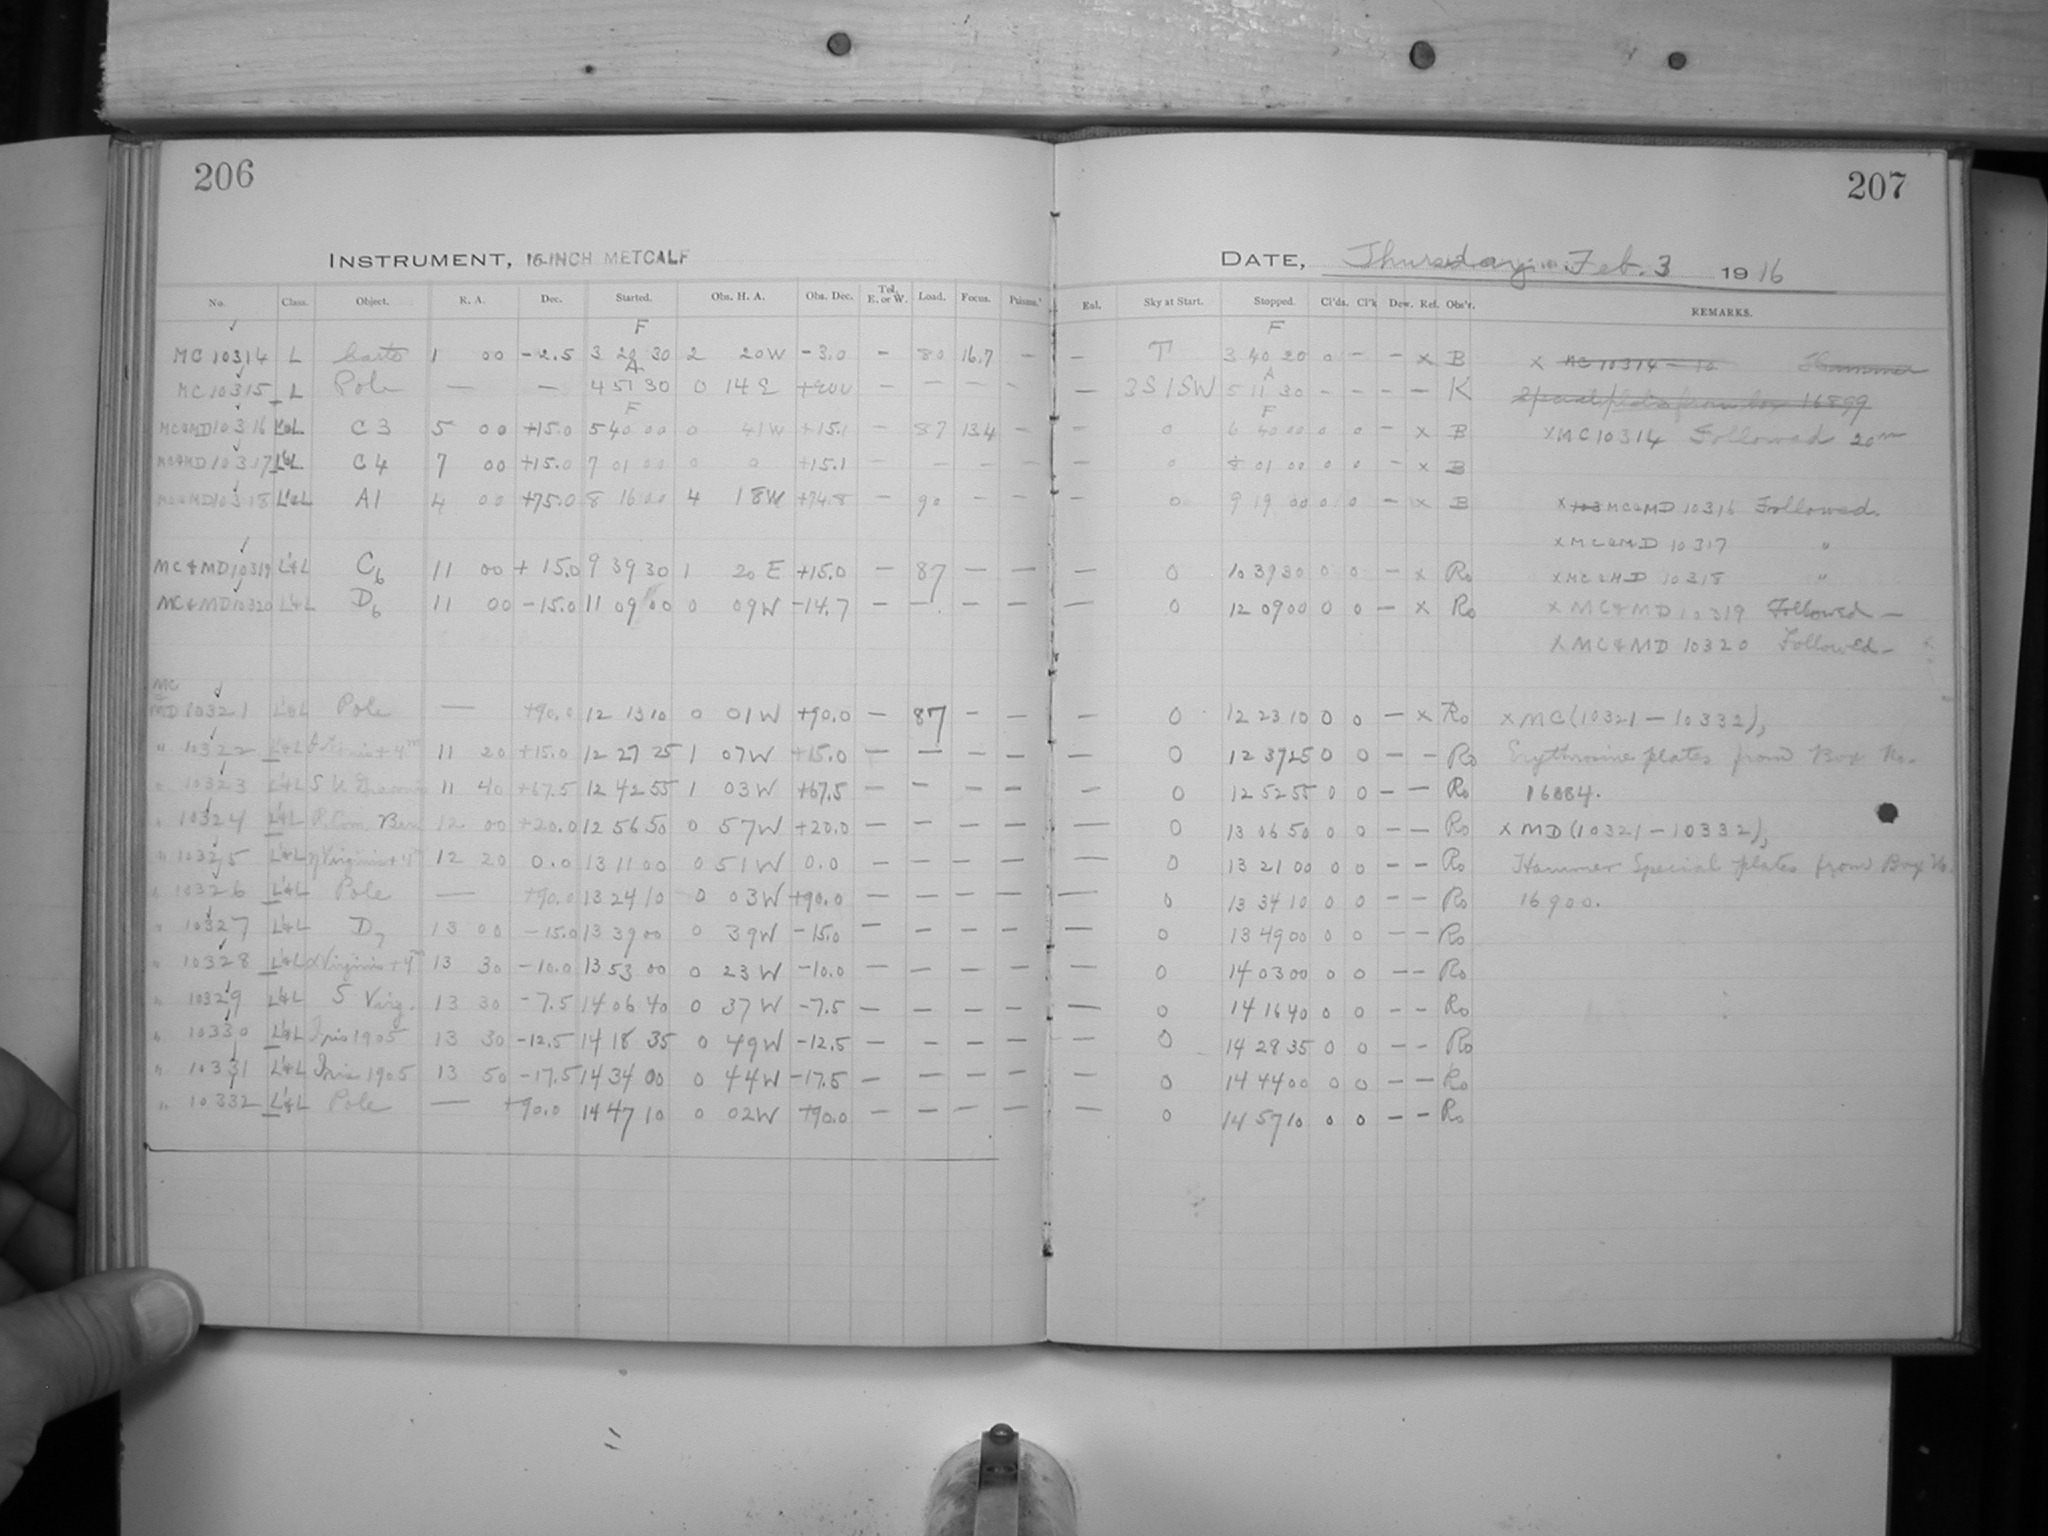 206
INSTRUMENT, 16-INCH METCALF
No. Class. Object. R. A. Dec. Started. Obs. H. A. Obs. Dec. Tel. E. or W. Load. Focus. Prisms.
F
MC 10314 L 1 00 -2.5 3 20 30 2 20W -3.0 - 80 16.7 -
A
MC 10315 L Pole — — 4 51 30 0 14 E - - - -
F
MC&MD 10316 L'&L C 3 5 00 +15.0 5 40 00 0 41W +15.1 - 87 13.4 -
MC&MD 10317 L'&L C4 7 00 +15.0 7 01 00 0 0 +15.1 - - - -
MC&MD 10318 L'&L A1 4 00 +75.0 8 16 00 4 18W +74.8 - 90 - -
MC&MD 10319 L'&L C6 11 00 +15.0 9 39 30 1 20 E +15.0 - 87 - -
MC&MD 10320 L'&L D6 11 00 -15.0 11 09 00 0 09W -14.7 - - - -
MC
MD 10321 L'&L Pole — +90.0 12 13 10 0 01W +90.0 - 87 - -
" 10322 L'&L +4m 11 20 +15.0 12 27 25 1 07W +15.0 - - - -
" 10323 L'&L 11 40 +67.5 12 42 55 1 03W +67.5 - - - -
" 10324 L'&L Com. Ber. 12 00 +20.0 12 56 50 0 57W +20.0 - - - -
" 10325 L'&L η Virginis+4m 12 20 0.0 13 11 00 0 51W 0.0 - - - -
" 10326 L'&L Pole — +90.0 13 24 10 0 03W +90.0 - - - -
" 10327 L'&L D7 13 00 -15.0 13 39 00 0 39W -15.0 - - - -
" 10328 L'&L α Virginis+4m 13 30 -10.0 13 53 00 0 23W -10.0 - - - -
" 10329 L'&L S Virg. 13 30 -7.5 14 06 40 0 37W -7.5 - - - -
" 10330 L'&L Iris 1905 13 30 -12.5 14 18 35 0 49W -12.5 - - - -
" 10331 L'&L Iris 1905 13 50 -17.5 14 34 00 0 44W -17.5 - - - -
" 10332 L'&L Pole — +90.0 14 47 10 0 02W +90.0 - - - -
207
DATE, Thursday Feb. 3 1916
Exl. Sky at Start. Stopped. Cl'ds. Cl'k Dew. Ref. Obs'r. REMARKS.
F
- T 3 40 20 0 - - x B x MC 10314 - 10 Hammer
A
- 3S1SW 5 11 30 - - - - K Special plates from box 16899
F
- 0 6 40 00 0 0 - x B xMC10314 Followed 20m
- 0 8 01 00 0 0 - x B
- 0 9 19 00 0 0 - x B x MC&MD 10316 Followed.
x MC&MD 10317 "
- 0 10 39 30 0 0 - x Ro x MC&MD 10318 "
- 0 12 09 00 0 0 - x Ro x MC&MD 10319 Followed-
x MC&MD 10320 Followed-
- 0 12 23 10 0 0 - x Ro x MC (10321-10332),
- 0 12 37 25 0 0 - - Ro Erythrosine plates from Box No.
- 0 12 52 55 0 0 - - Ro 16884.
- 0 13 06 50 0 0 - - Ro x MD (10321-10332),
- 0 13 21 00 0 0 - - Ro Hammer Special plates from Box No.
- 0 13 34 10 0 0 - - Ro 16900.
- 0 13 49 00 0 0 - - Ro
- 0 14 03 00 0 0 - - Ro
- 0 14 16 40 0 0 - - Ro
- 0 14 28 35 0 0 - - Ro
- 0 14 44 00 0 0 - - Ro
- 0 14 57 10 0 0 - - Ro